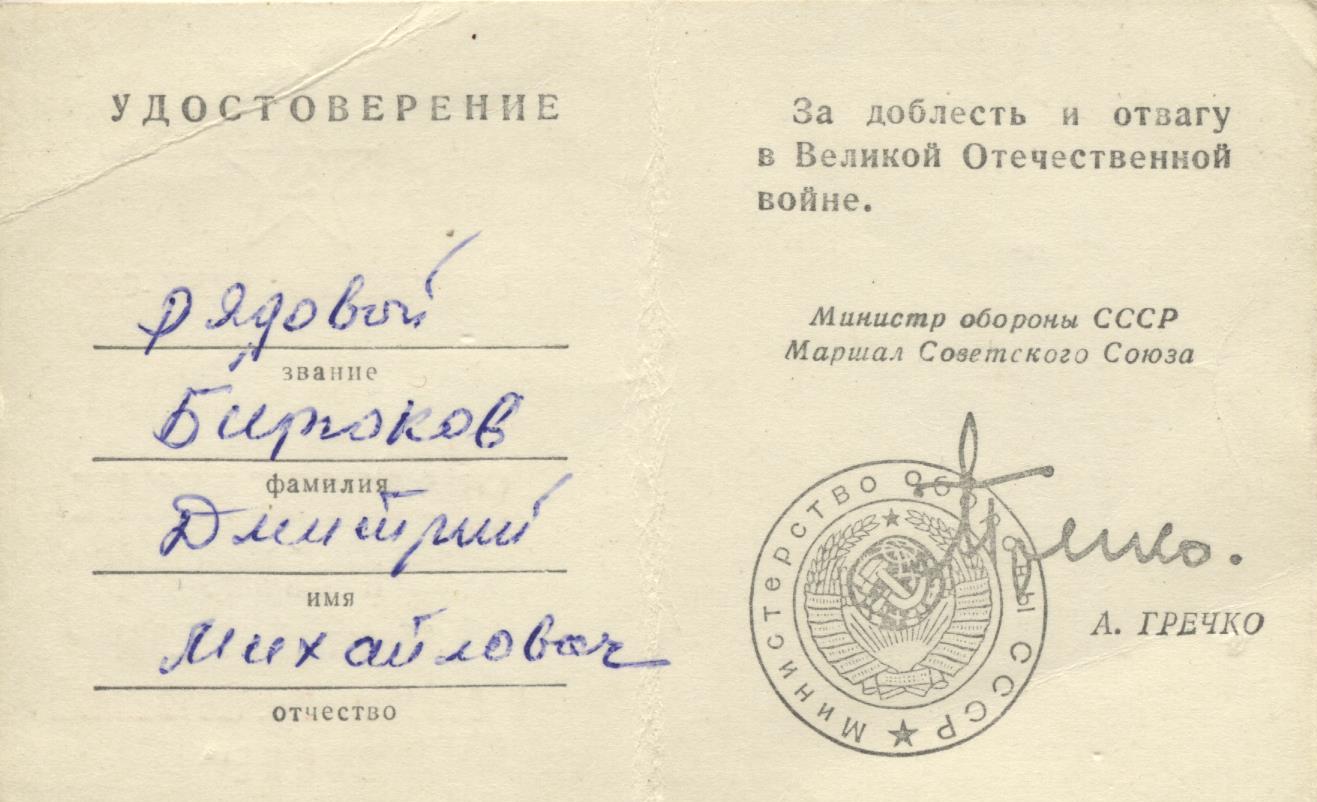 УДОСТОВЕРЕНИЕ
рядовой
звание
Бирюков
фамилия
Дмитрий
имя
Михайлович
отчество
За доблесть и отвагу
в Великой Отечественной
войне.
Министр обороны СССР
Маршал Советского Союза
Министерство Обороны СССР
Гречко.
А. ГРЕЧКО